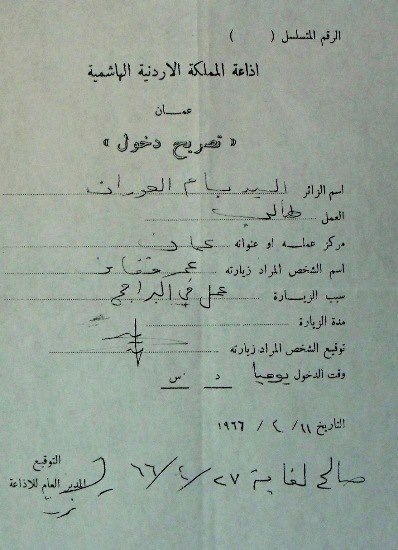 الرقم المتسلسل (       )
اذاعة المملكة الاردنية الهاشمية
عمــان
« تصريح دخول »
اسم الزائر السيد بسام الحوراني
العمل طالب
مركز عملـه او عنوانه عمان
اسم الشخص المراد زيارته عمر
سبب الزيـارة عمل في البرامج
مدة الزيارة
توقيع الشخص المراد زيارته
وقت الدخول يوميا د س
التاريخ ١١ / ٢ / ١٩٦٦
صالح لغاية ٢٧/٢/٦٦
التوقيع
المدير العام للاذاعة